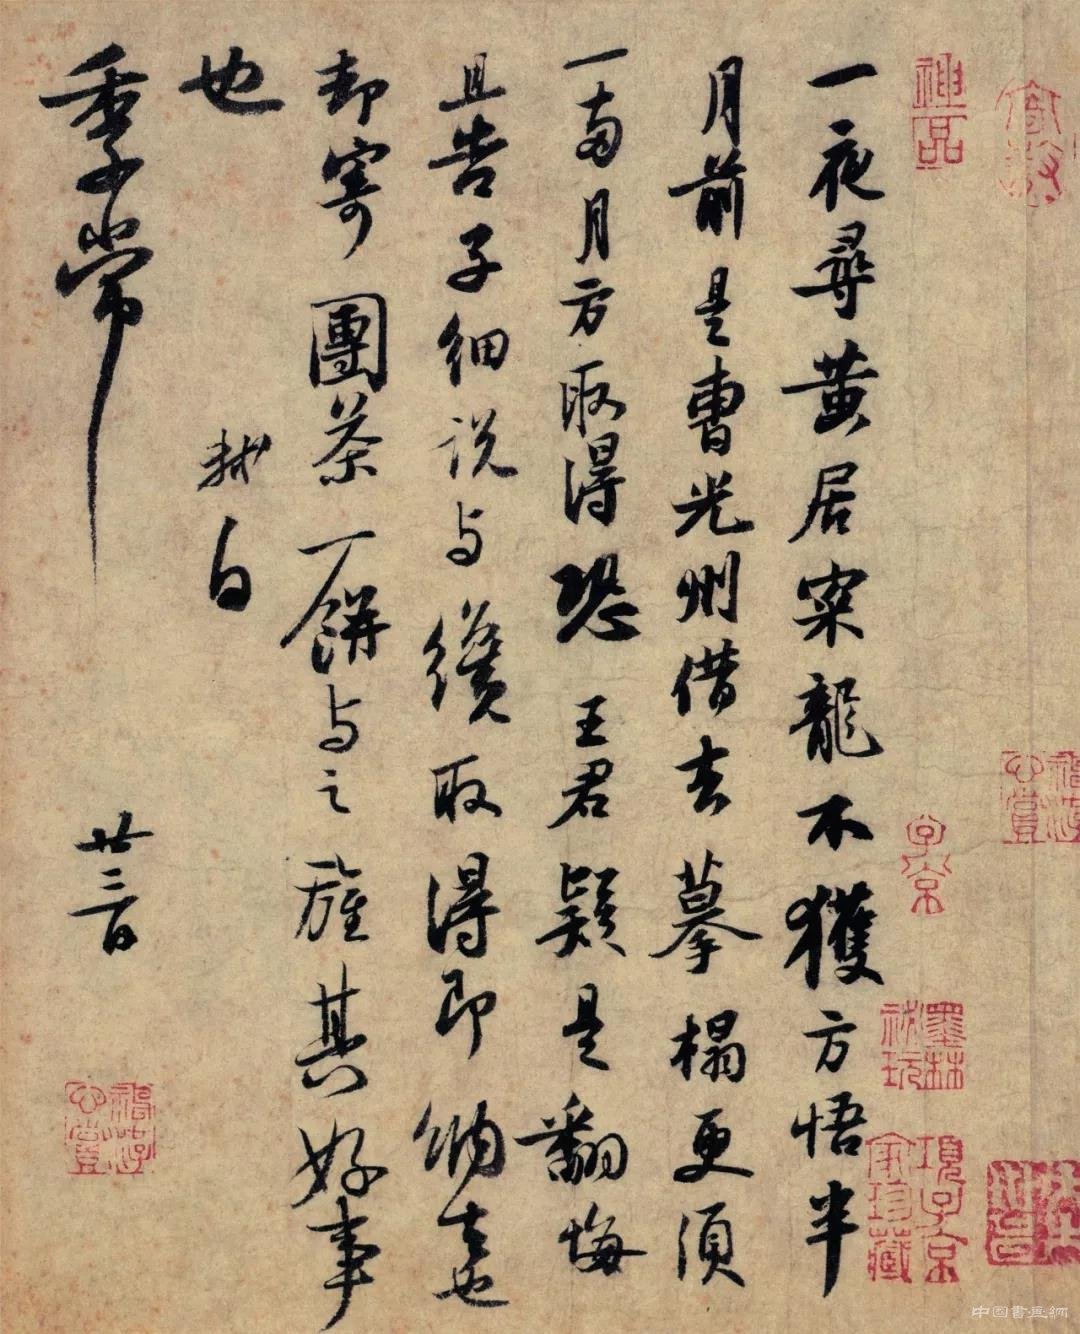 一夜尋黄居寀龍不獲方悟半
月前是曹光州借去摹搨更須
一兩月方取得恐王君疑是翻悔
且告子細說与纔取得即納去也
却寄團茶一餅与之旌其好事
也
軾白
季常
廿三日
神品
子京
墨林祕玩
項子京家珍藏
中国書画網